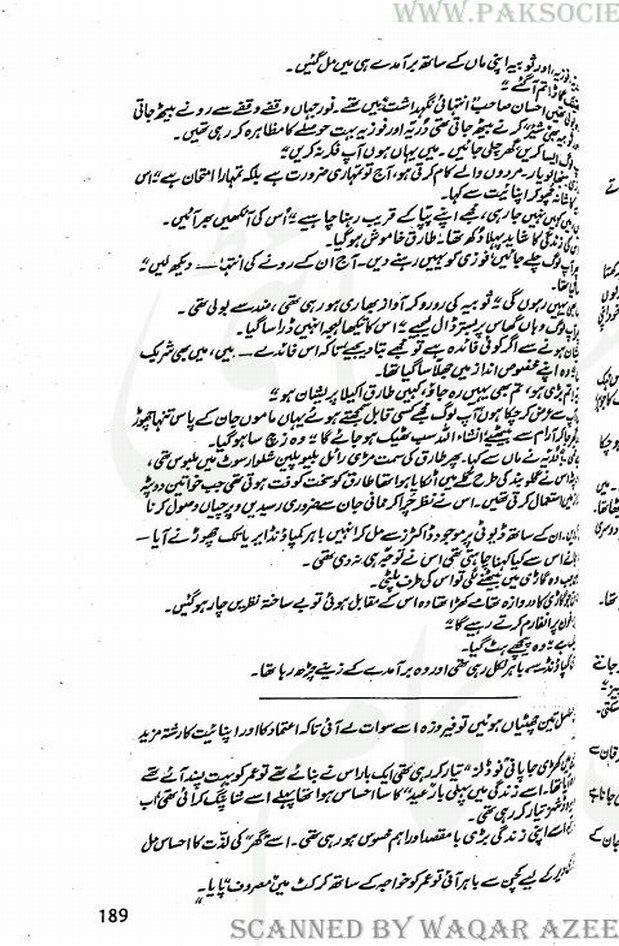 WWW.PAKSOCIE
فوزیہ اور ثوبیہ اپنی ماں کے ساتھ برآمدے ہی میں مل گئیں۔
تم آ گئے"
احسان صاحب انتہائی نگہداشت میں تھے۔ نور جہاں وقفے وقفے سے رونے بیٹھ جاتی
کرنے بیٹھ جاتی تھی دُرّیہ اور فوزیہ بہت حوصلے کا مظاہرہ کر رہی تھیں۔
ایسا کریں گھر چلی جائیں۔ میں یہاں ہوں آپ فکر نہ کریں"
مردوں والے کام کرتی ہو، آج تو تمہاری ضرورت ہے بلکہ تمہارا امتحان ہے" اس
کا شانہ چھو کر اپنائیت سے کہا۔
میں کہیں نہیں جا رہی، مجھے اپنے پپا کے قریب رہنا چاہیے" اُس کی آنکھیں بھر آئیں۔
اس کی زندگی کا شاید پہلا دُکھ تھا۔ طارق خاموش ہو گیا۔
آپ لوگ چلے جائیں فوزی کو یہیں رہنے دیں۔ آج ان کے رونے کی انتہا — دیکھ لیں"
تھا۔
یہیں رہوں گی" ثوبیہ کی رو رو کر آواز بھاری ہو رہی تھی، ضد سے بولی تھی۔
آپ لوگ وہاں گھاس پر بستر ڈال لیجیے" اس کا تیکھا لہجہ انہیں ڈرا سا گیا۔
ہونے سے اگر کوئی فائدہ ہے تو مجھے بتا دیجیے تاکہ اس فائدے — میں، میں بھی شریک
وہ اپنے مخصوص انداز میں جھلا سا گیا تھا۔
تم بڑی ہو، تم بھی یہیں رہ جاؤ، کہیں طارق اکیلا پریشان ہو"
سے عرض کر چکا ہوں آپ لوگ مجھے کسی قابل سمجھتے ہوئے یہاں ماموں جان کے پاس تنہا چھوڑ
جا کر آرام سے بیٹھیے انشاء اللہ سب ٹھیک ہو جائے گا" وہ زچ سا ہو گیا۔
دُرّیہ نے ماں سے کہا۔ پھر طارق کی سمت مڑی رائل بلیو پلین شلوار سوٹ میں ملبوس تھی،
اس نے گلو بند کی طرح گلے میں اٹکایا ہوا تھا طارق کو سخت کوفت ہوتی تھی جب خواتین دوپٹہ
میں استعمال کرتی تھیں۔ اس نے نظر چرا کر ممانی جان سے ضروری رسیدیں و پرچیاں وصول کرنا
ان کے ساتھ ڈیوٹی پر موجود ڈاکٹرز سے مل کر انہیں باہر کمپاؤنڈ ایریا تک چھوڑنے آیا —
اس سے کیا کہنا چاہتی تھی اس نے توجہ ہی نہ دی تھی۔
جب وہ گاڑی میں بیٹھنے لگی تو اس کی طرف پلٹی۔
گاڑی کا دروازہ تھامے کھڑا تھا وہ اس کے مقابل ہوئی تو بے ساختہ نظریں چار ہو گئیں۔
فون پر انفارم کرتے رہیے گا"
وہ پیچھے ہٹ گیا۔
کمپاؤنڈ سے باہر نکل رہی تھی اور وہ برآمدے کے زینے چڑھ رہا تھا۔
تین چھٹیاں ہوئیں تو فیروزہ اسے سوات لے آئی تاکہ اعتماد کا اور اپنائیت کا رشتہ مزید
کھڑی جاپانی "نوڈلز" تیار کر رہی تھی ایک بار اس نے بنائے تھے تو عمر کو بہت پسند آئے تھے
تھا۔ اسے زندگی میں پہلی بار "عید" کا سا احساس ہوا تھا پہلے اسے شاپنگ کرائی تھی اب
تیار کر رہی تھی۔
اسے اپنی زندگی بڑی با مقصد اور اہم محسوس ہو رہی تھی۔ اسے "گھر" کی لذّت کا احساس مل
کے لیے کچن سے باہر آئی تو عمر کو خواجہ کے ساتھ کرکٹ میں "مصروف" پایا۔
189
SCANNED BY WAQAR AZEE